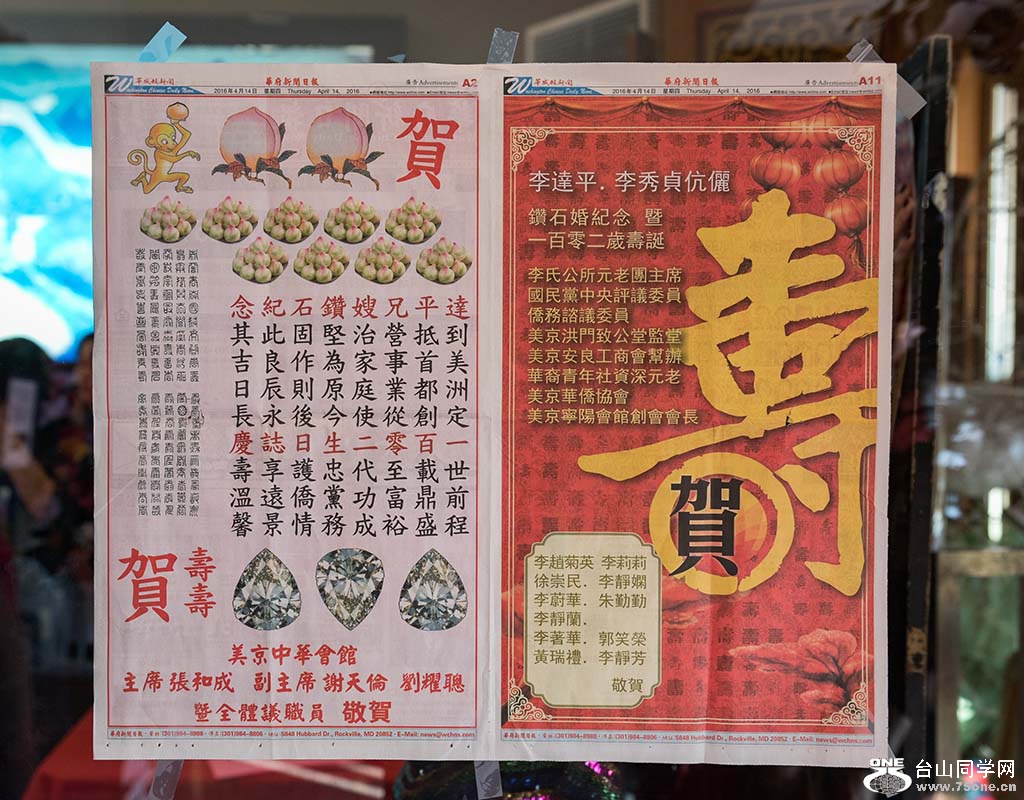 華盛頓新聞
Washington Chinese Daily News
華府新聞日報
廣告 Advertisements A2
2016年4月14日 星期四 Thursday April 14, 2016
賀
達到美洲定一世前程
平抵首都創百載鼎盛
兄營事業從零至富裕
嫂治家庭使二代功成
鑽堅為原今生忠黨務
石固作則後日護僑情
紀此良辰永誌享遠景
念其吉日長慶壽溫馨
賀
壽壽
美京中華會館
主席張和成 副主席謝天倫 劉耀聰
暨全體議職員 敬賀
華府新聞日報 (301)984-8988 5848 Hubbard Dr., Rockville, MD 20852 E-Mail: news@wchns.com
華盛頓新聞
Washington Chinese Daily News
華府新聞日報
廣告 Advertisements A11
2016年4月14日 星期四 Thursday April 14, 2016
李達平．李秀貞伉儷
鑽石婚紀念 暨
一百零二歲壽誕
李氏公所元老團主席
國民黨中央評議委員
僑務諮議委員
美京洪門致公堂監堂
美京安良工商會幫辦
華裔青年社資深元老
美京華僑協會
美京寧陽會館創會會長
壽
賀
李趙菊英 李莉莉
徐崇民．李靜嫻
李蔚華．朱勤勤
李靜蘭．
李著華．郭笑榮
黃瑞禮．李靜芳
敬賀
華府新聞日報 (301)984-8988 5848 Hubbard Dr., Rockville, MD 20852 E-Mail: news@wchns.com
ONE
台山同学网
www.75one.cn